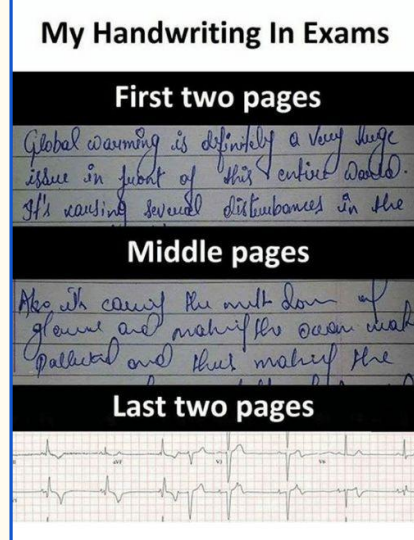 My Handwriting In Exams
First two pages
Global warming is definitely a very huge
issue in front of this entire world.
It's causing several disturbances in the
Middle pages
Also its causing the melt down of
and making the ocean
and thus making the
Last two pages
aVF V3 V6